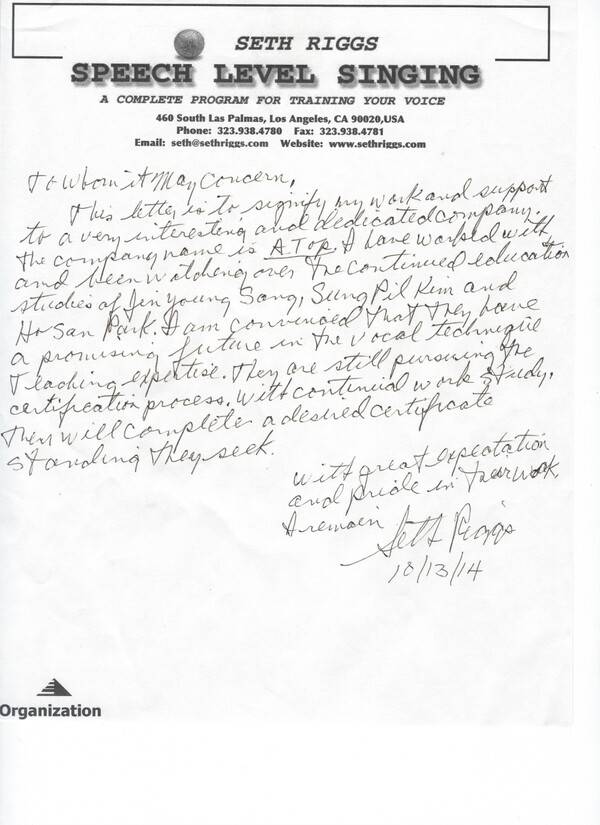 SETH RIGGS
SPEECH LEVEL SINGING
A COMPLETE PROGRAM FOR TRAINING YOUR VOICE
460 South Las Palmas, Los Angeles, CA 90020,USA
Phone: 323.938.4780 Fax: 323.938.4781
Email: seth@sethriggs.com Website: www.sethriggs.com
To Whom it May Concern,
This letter is to signify my work and support
to a very interesting and dedicated company.
The company name is A Top. I have worked with
and been watching over the continued education
studies of Jin Young Song, Sung Pil Kim and
Ho San Park. I am convinced that they have
a promising future in the vocal technique
teaching expertise. They are still pursuing the
certification process. With continual work & study,
they will complete a desired certificate
standing they seek.
With great expectation
and pride in their work,
I remain Seth Riggs
10/13/14
Organization